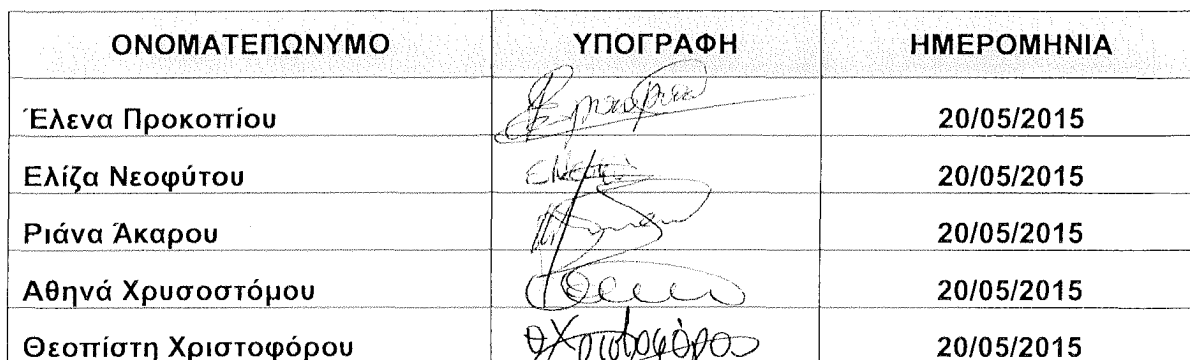 ΟΝΟΜΑΤΕΠΩΝΥΜΟ ΥΠΟΓΡΑΦΗ ΗΜΕΡΟΜΗΝΙΑ
Έλενα Προκοπίου 20/05/2015
Ελίζα Νεοφύτου 20/05/2015
Ριάνα Άκαρου 20/05/2015
Αθηνά Χρυσοστόμου 20/05/2015
Θεοπίστη Χριστοφόρου 20/05/2015